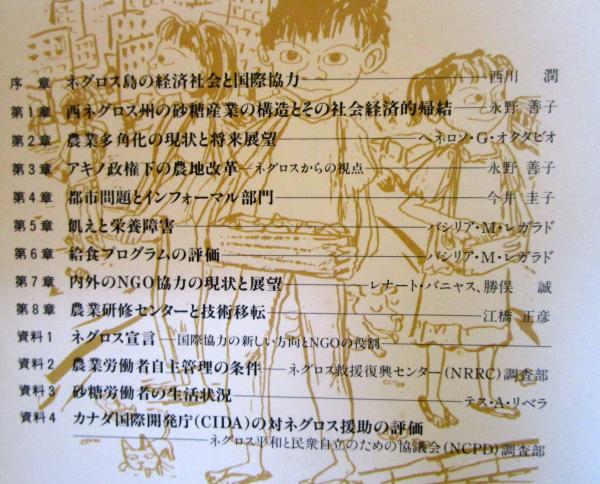 序　章　ネグロス島の経済社会と国際協力――西川　潤
第1章　西ネグロス州の砂糖産業の構造とその社会経済的帰結――永野 善子
第2章　農業多角化の現状と将来展望――ヘネロソ・G・オクタビオ
第3章　アキノ政権下の農地改革―ネグロスからの視点――永野 善子
第4章　都市問題とインフォーマル部門――今井 圭子
第5章　飢えと栄養障害――バシリア・M・レガラド
第6章　給食プログラムの評価――バシリア・M・レガラド
第7章　内外のNGO協力の現状と展望――レナート・バニャス、勝俣　誠
第8章　農業研修センターと技術移転――江橋 正彦
資料1　ネグロス宣言―国際協力の新しい方向とNGOの役割――
資料2　農業労働者自主管理の条件―ネグロス救援復興センター(NRRC)調査部
資料3　砂糖労働者の生活状況――テス・A・リベラ
資料4　カナダ国際開発庁(CIDA)の対ネグロス援助の評価
――ネグロス平和と民衆自立のための協議会(NCPD)調査部